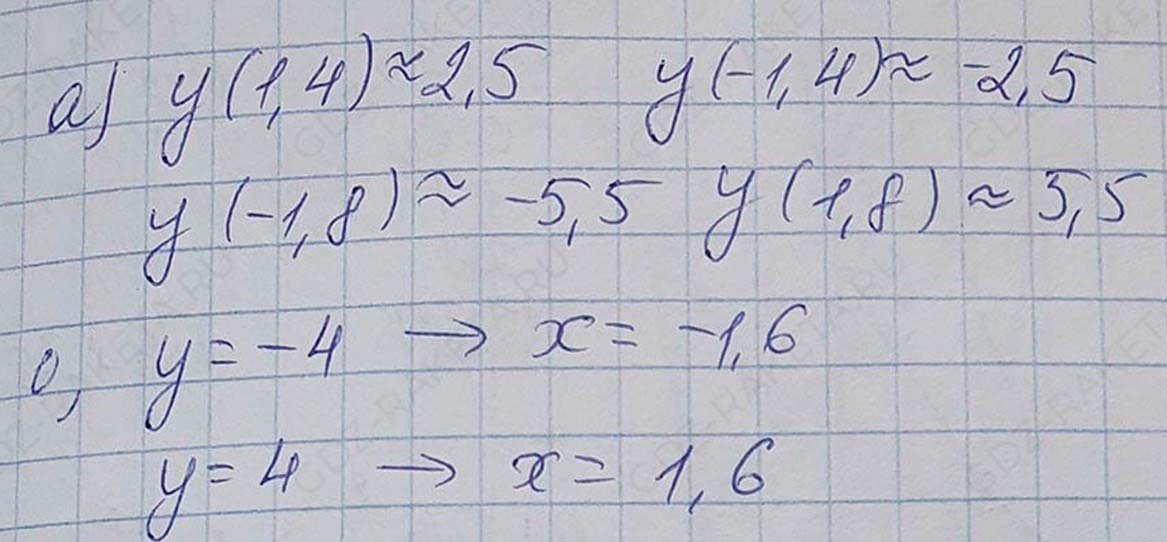 а) y(1,4)≈2,5 y(-1,4)≈-2,5
y(-1,8)≈-5,5 y(1,8)≈5,5
y=-4 → x=-1,6
y=4 → x=1,6